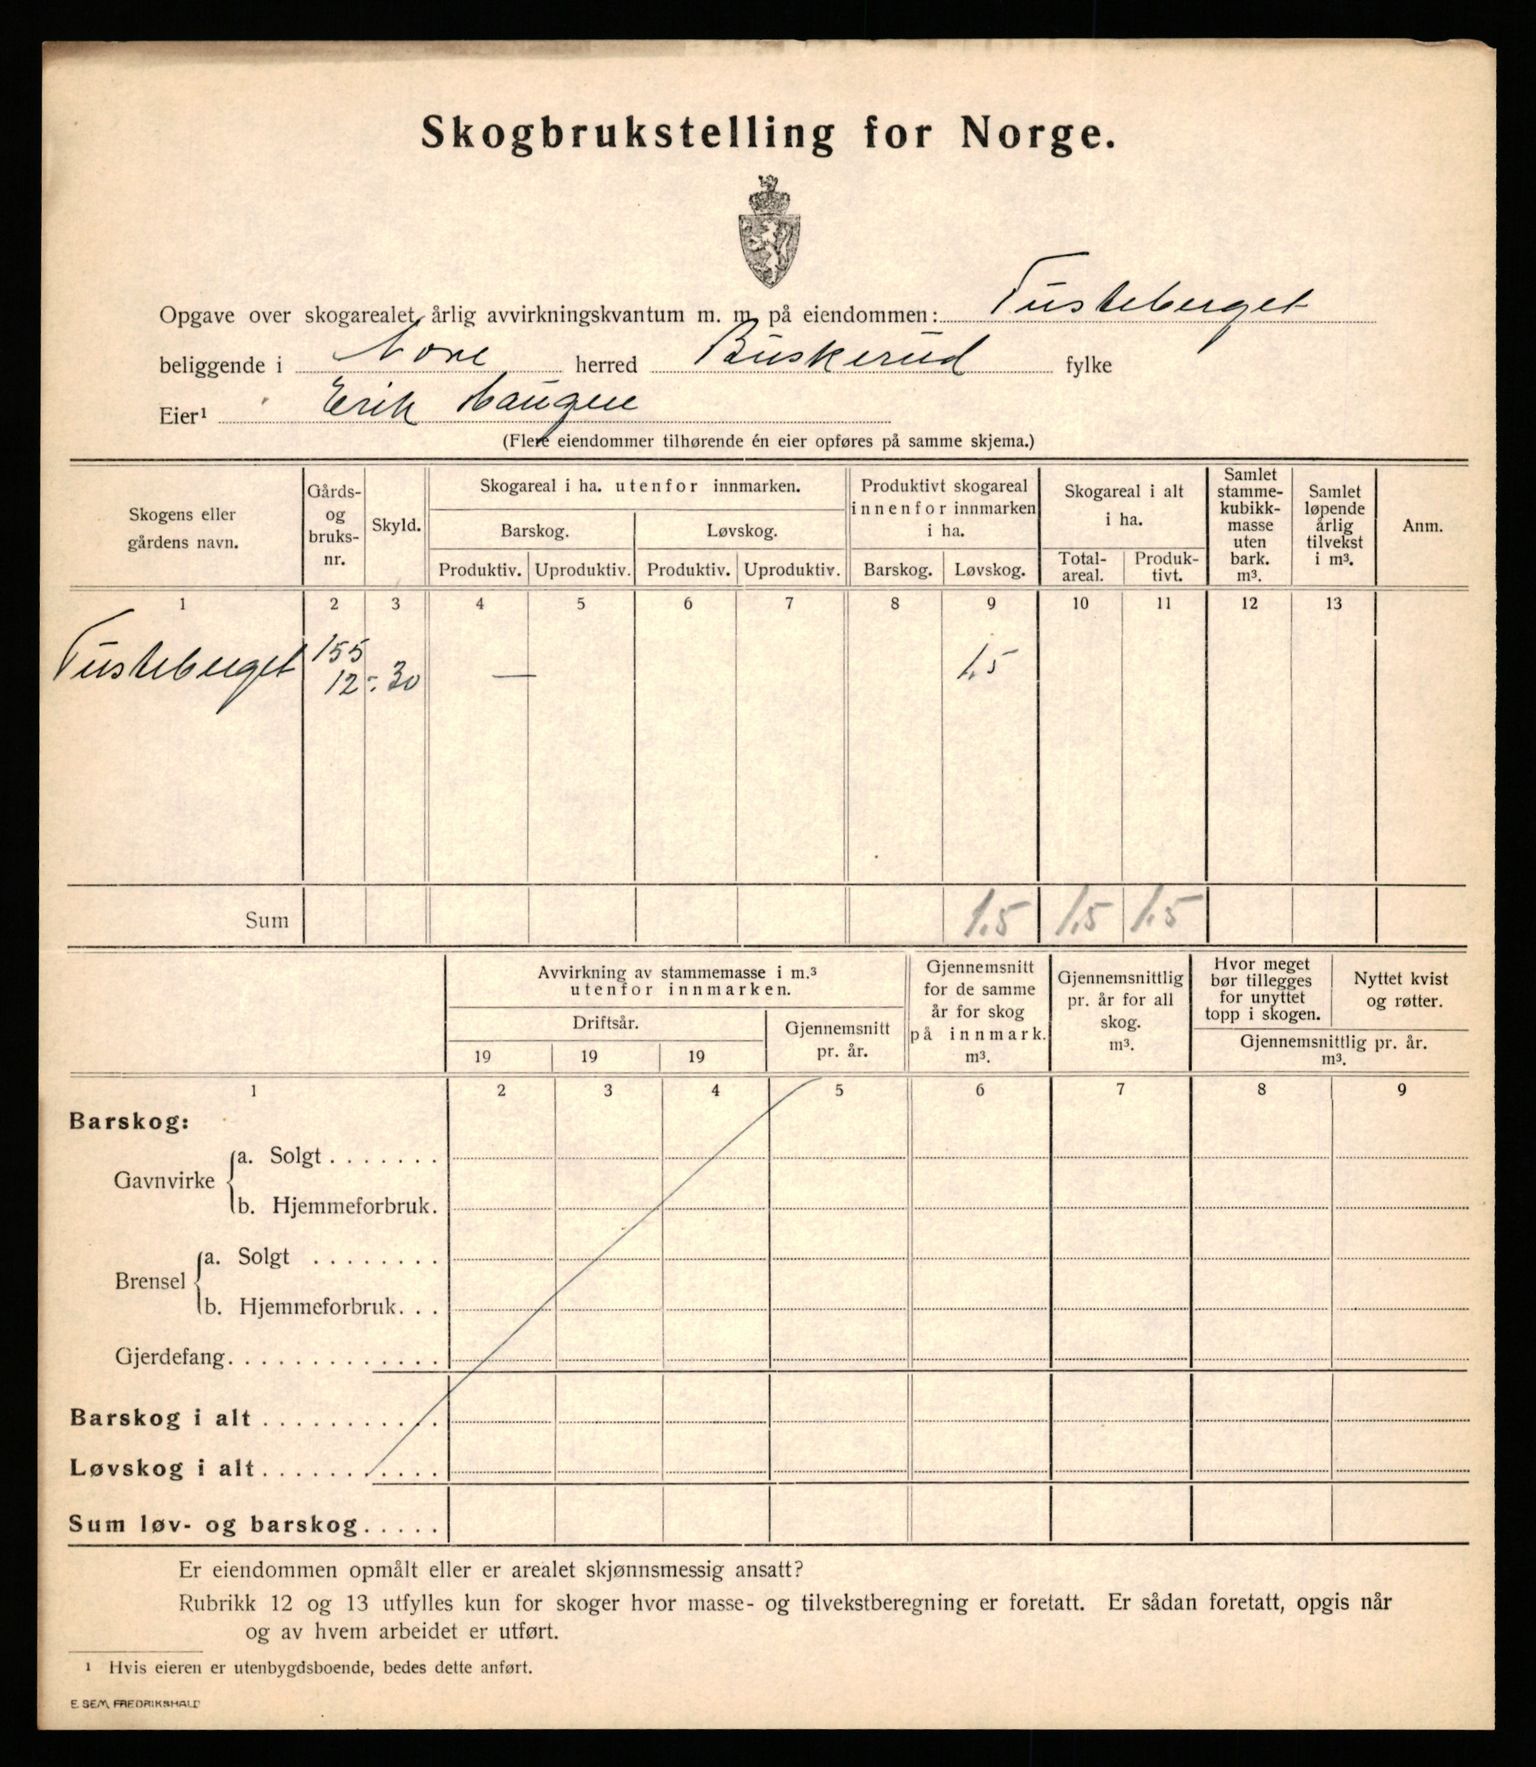 Skogbrukstelling for Norge.
Opgave over skogarealet, årlig avvirkningskvantum m. m. på eiendommen: Tusteberget
beliggende i Nore herred Buskerud fylke
Eier¹ Erik Haugen
(Flere eiendommer tilhørende én eier opføres på samme skjema.)
Skogens eller gårdens navn.
Gårds- og bruks- nr.
Skyld.
Skogareal i ha. utenfor innmarken.
Barskog.
Løvskog.
Produktiv. Uproduktiv. Produktiv. Uproduktiv.
Produktivt skogareal innenfor innmarken i ha.
Barskog. Løvskog.
Skogareal i alt i ha.
Total- areal.
Produk- tivt.
Samlet stamme- kubikk- masse uten bark. m³.
Samlet løpende årlig tilvekst i m³.
Anm.
1 2 3 4 5 6 7 8 9 10 11 12 13
Tusteberget 155 12 -.30 — 1.5
Sum 1.5 1.5 1.5
Avvirkning av stammemasse i m.³ utenfor innmarken.
Driftsår.
19 19 19
Gjennemsnitt pr. år.
Gjennemsnitt for de samme år for skog på innmark. m³.
Gjennemsnittlig pr. år for all skog. m³.
Hvor meget bør tillegges for unyttet topp i skogen.
Nyttet kvist og røtter.
Gjennemsnittlig pr. år. m³.
1 2 3 4 5 6 7 8 9
Barskog:
Gavnvirke
a. Solgt . . . . . . .
b. Hjemmeforbruk.
Brensel
a. Solgt . . . . . . . .
b. Hjemmeforbruk. . .
Gjerdefang. . . . . . . . . . . . .
Barskog i alt . . . . . . . . . . .
Løvskog i alt . . . . . . . . . . .
Sum løv- og barskog . . . . .
Er eiendommen opmålt eller er arealet skjønnsmessig ansatt?
Rubrikk 12 og 13 utfylles kun for skoger hvor masse- og tilvekstberegning er foretatt. Er sådan foretatt, opgis når
og av hvem arbeidet er utført.
¹ Hvis eieren er utenbygdsboende, bedes dette anført.
E. SEM, FREDRIKSHALD